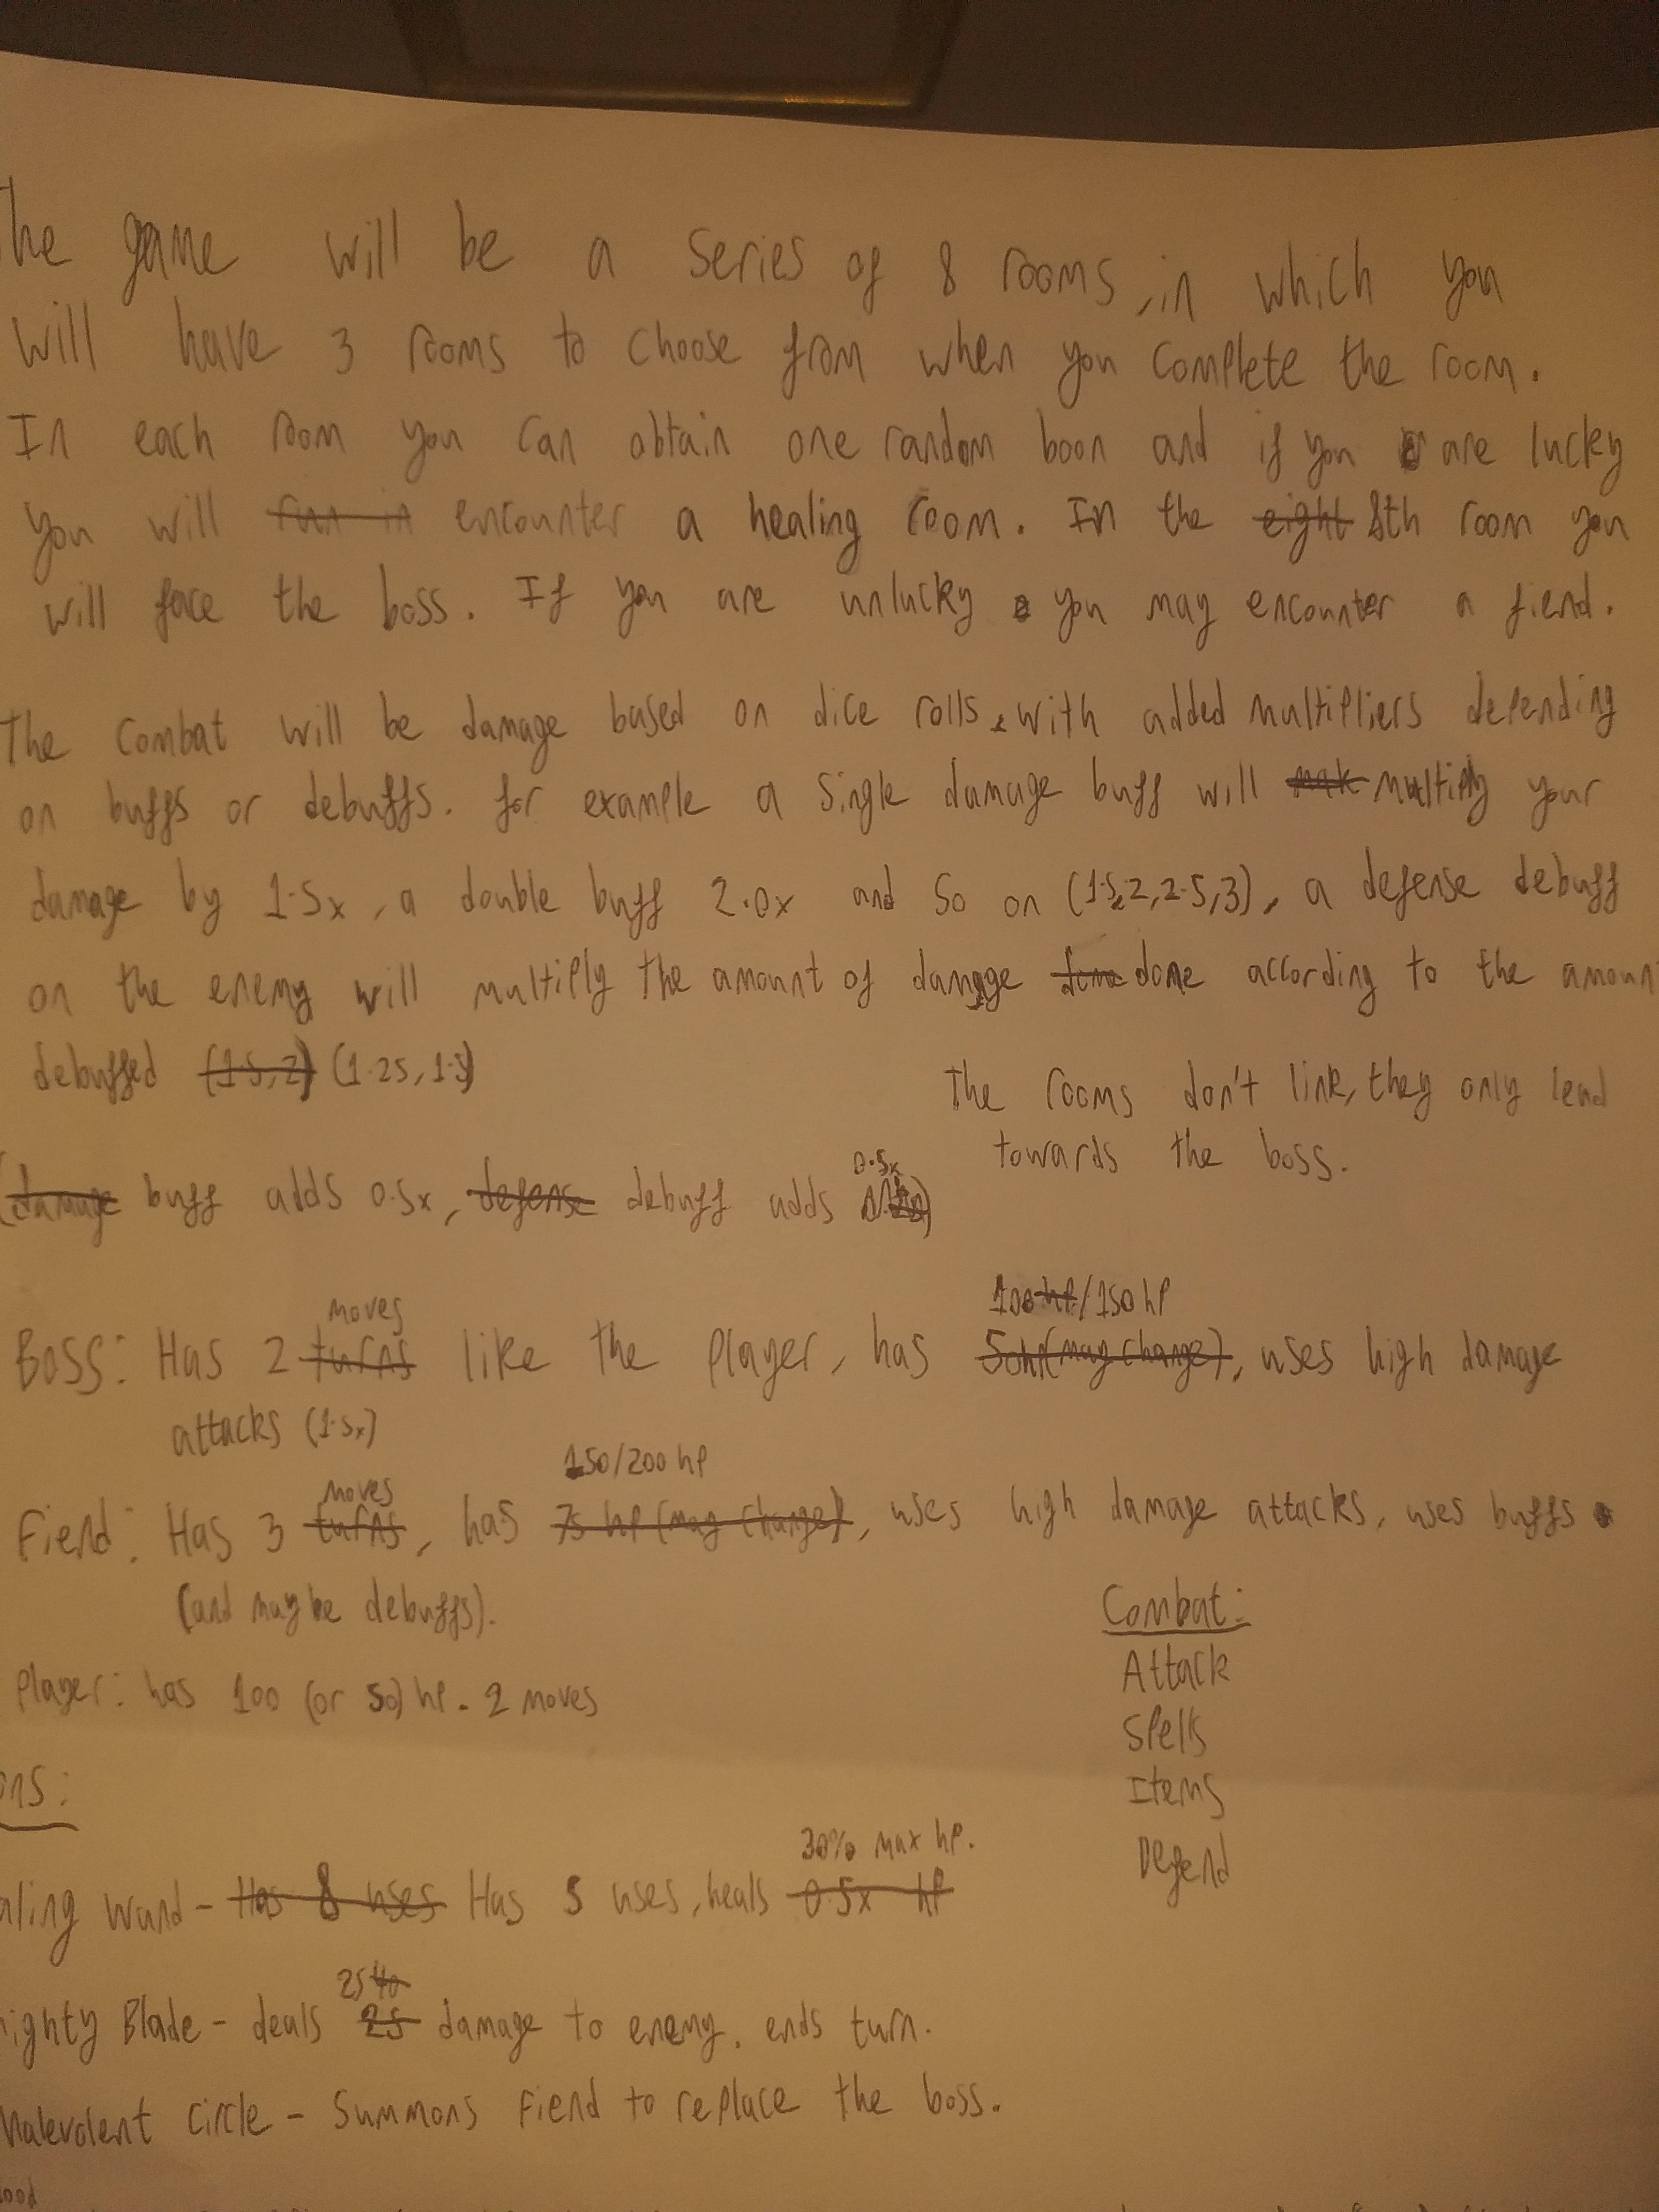 The game will be a series of 8 rooms, in which you
will have 3 rooms to choose from when you complete the room.
In each room you can obtain one random boon and if you are lucky
you will run in encounter a healing room. In the eight 8th room you
will face the boss. If you are unlucky you may encounter a fiend.
The combat will be damage based on dice rolls, with added multipliers depending
on buffs or debuffs. for example a single damage buff will mak multiply your
damage by 1.5x, a double buff 2.0x and so on (1.5,2,2.5,3), a defense debuff
on the enemy will multiply the amount of damage done done according to the amoun
debuffed (1.5,2) (1.25,1.5)
The rooms don't link, they only lead
towards the boss.
0.5x
(damage buff adds 0.5x, defense debuff adds
100hp/150hp
moves
Boss: Has 2 turns like the player, has 50hp(may change), uses high damage
attacks (1.5x)
150/200 hp
moves
Fiend: Has 3 turns, has 75 hp (may change), uses high damage attacks, uses buffs
(and maybe debuffs).
Player: has 100 (or 50) hp. 2 moves
Combat:
Attack
Spells
Items
Defend
ons:
30% max hp.
aling Wand - Has 8 uses Has 5 uses, heals 0.5x hp
25 40
ighty Blade - deals 25 damage to enemy, ends turn.
Malevolent circle - Summons fiend to replace the boss.
ood